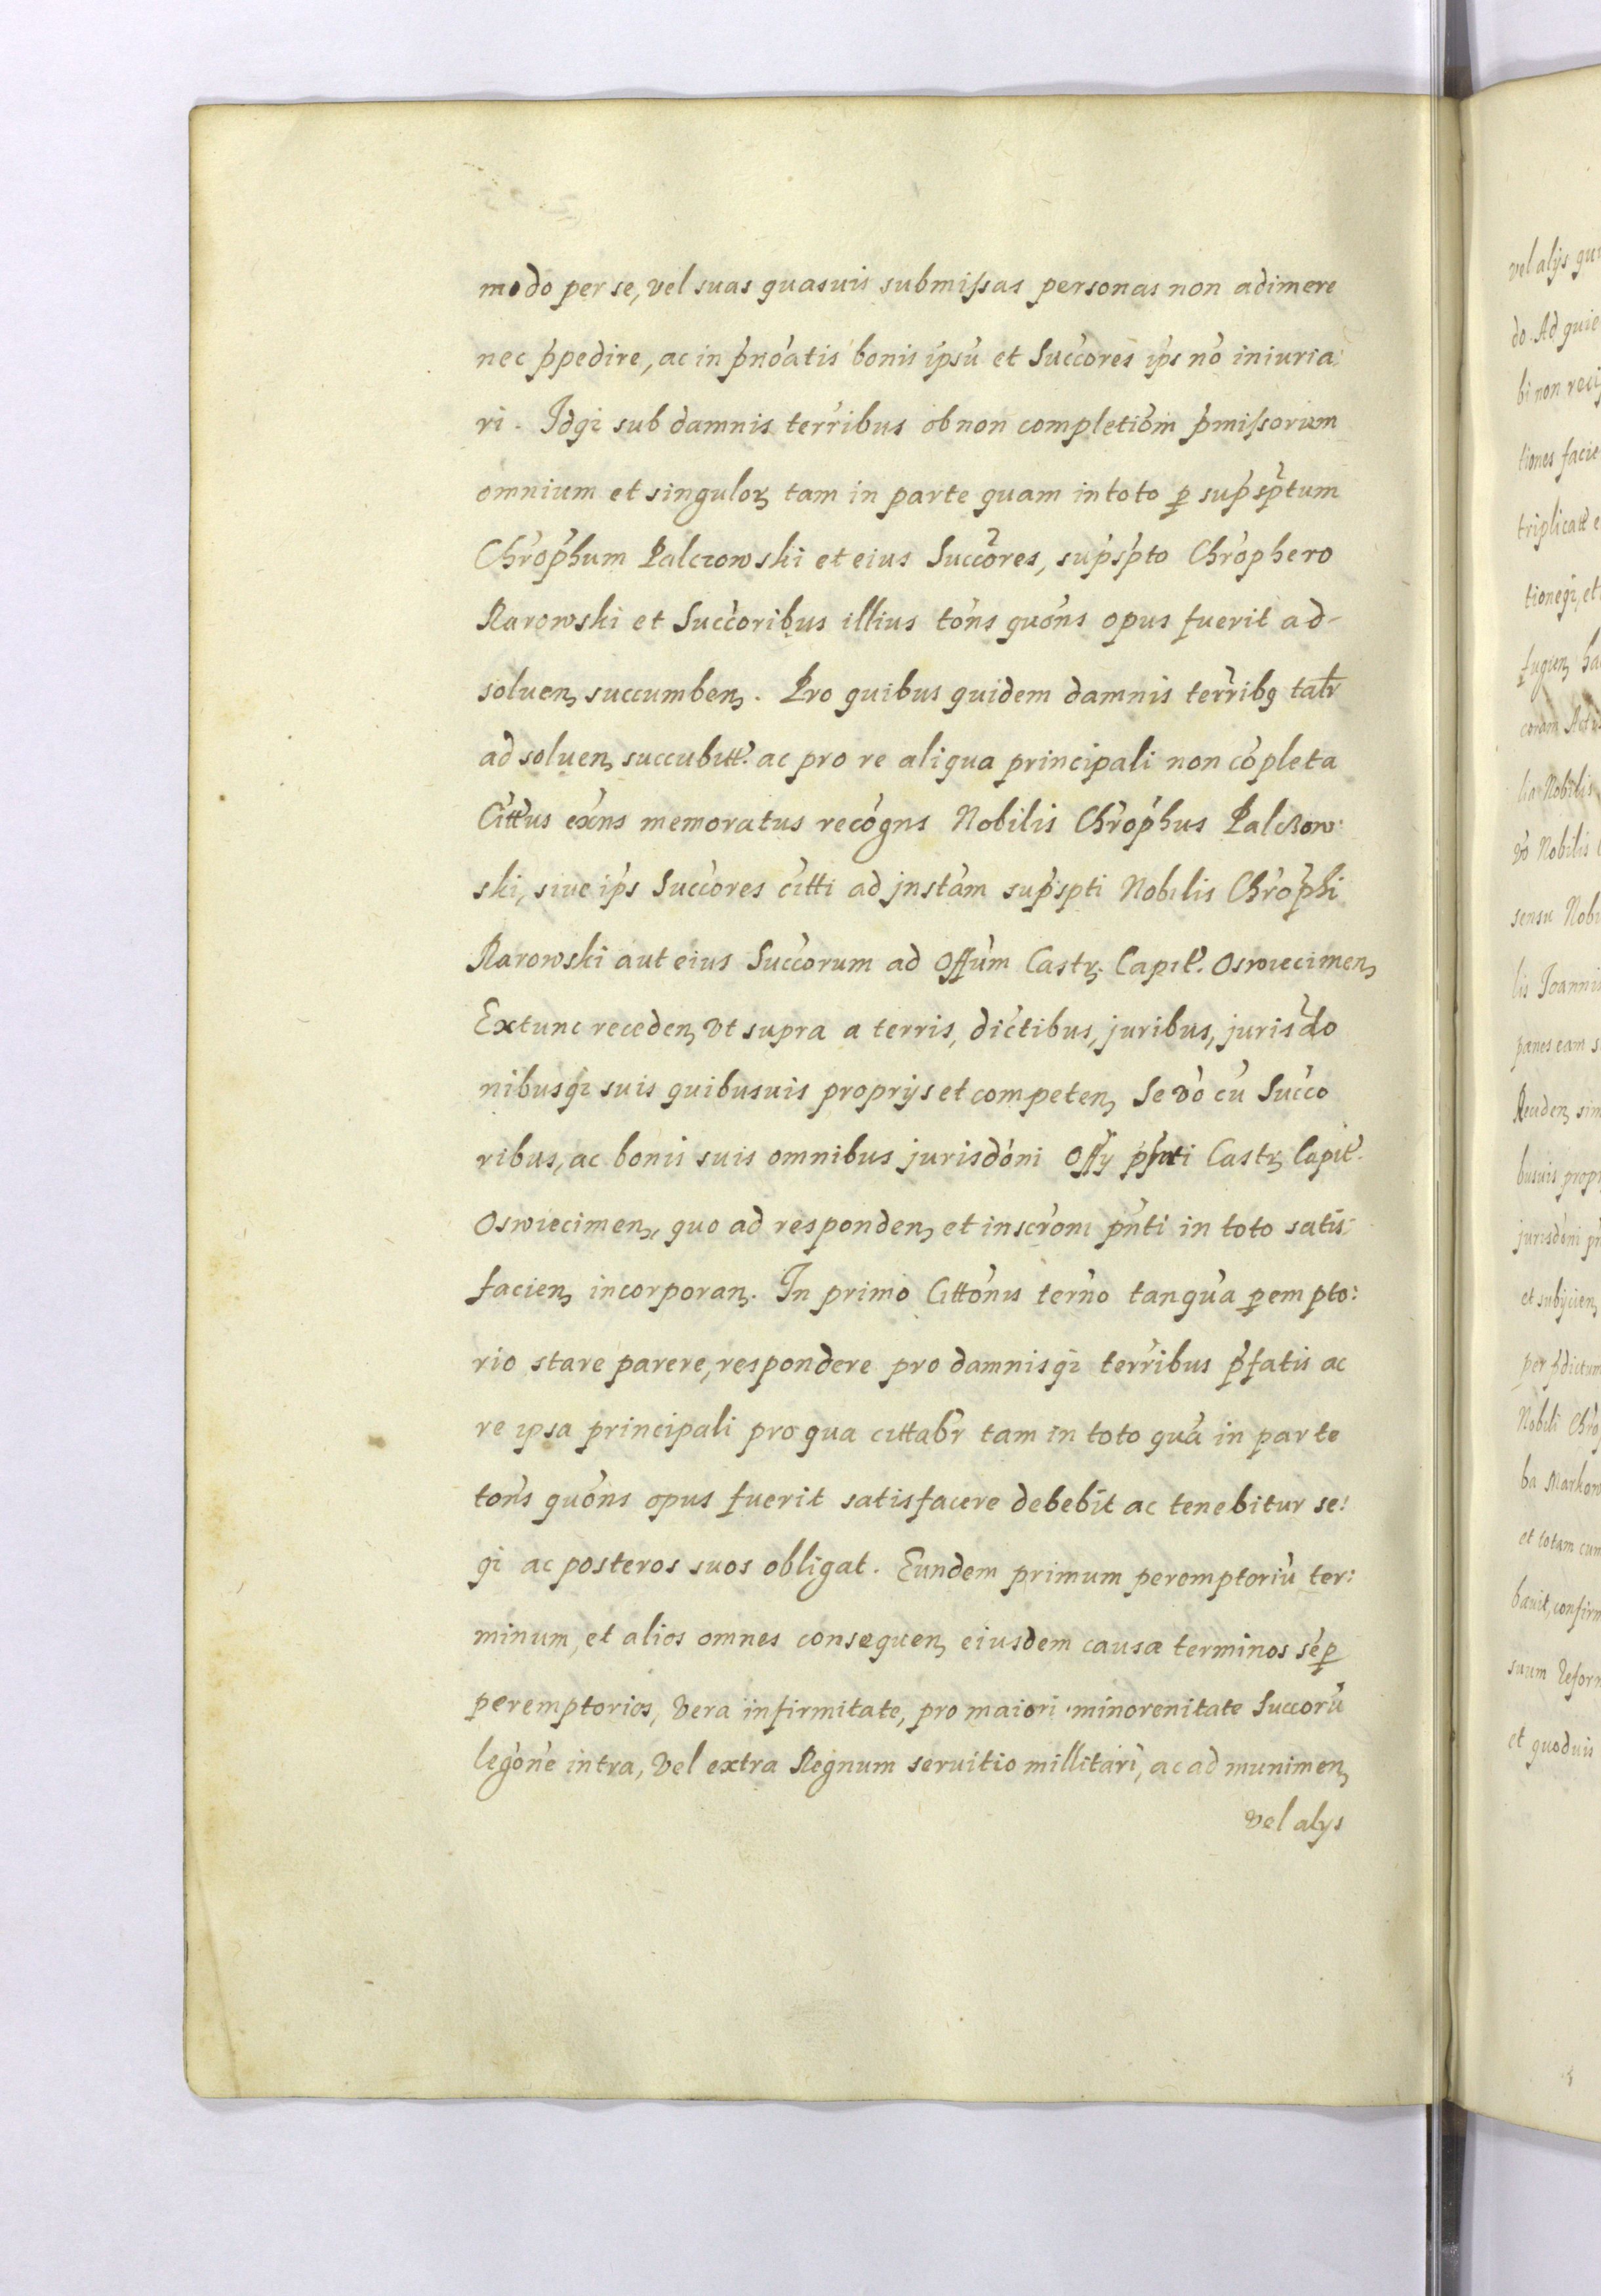 modo per se, vel suas quasuis submissas personas non adimere
nec p̀pedire, ac in p̀nóatis bonis ipsú et Succ̀ores ip̀s nó iniuria:
ri. Idq₃ sub damnis terr̀ibus ob non completióm p̀missorum
omnium et singuloꝝ tam in parte quam in toto ꝑ sup̀sp̀tum
Chrop̀hum Palczowski et eius Succ̀ores, sup̀sp̀to Chròphero
Rarowski et Succ̀oribus illius tóns quóns opus fuerit ad-
soluenꝫ succumbenꝫ. Pro quibus quidem damnis terr̀ibꝯ talr̀
ad soluenꝫ succubitt̀. ac pro re aliqua principali non cópleta
Citt̀us exńs memoratus recógns Nobilis Chròp̀hus Palczow:
ski, siue ip̀s Succ̀ores citti ad jnstám sup̀sp̀ti Nobilis Chròp̀hi
Rarowski aut eius Succ̀orum ad Offúm Castꝝ. Capit̀. Oswiecimenꝫ
Extunc recedenꝫ vt supra a terris, dićtibus, juribus, jurisd̀o
nibusq₃ suis quibusuis proprijs et competenꝫ Se v̀o cú Succ̀o
ribus, ac bonis suis omnibus jurisdóni Offy p̀nti Castꝝ Capit̀.
Oswiecimenꝫ, quo ad respondenꝫ et inscròni p̀nti in toto satis:
facienꝫ incorporanꝫ. In primo Cittónis terńo tanquá ꝑempto:
rio stare parere, respondere pro damnisq₃ terr̀ibus p̀fatis ac
re ipsa principali pro qua cittabr̀ tam in toto quá in parte
tóns quóns opus fuerit satisfacere debebit ac tenebitur se:
q₃ ac posteros suos obligat. Eundem primum peremptoriú ter:
minum, et alios omnes consequenꝫ eiusdem causæ terminos séꝑ
peremptorios, vera infirmitate, pro maiori minorenitate Succorú
legóne intra, vel extra Regnum seruitio millitari, ac ad munimenꝫ
vel alys
vel alijs
do. Ad
bi non
tiones
triplicatt̀
et
coram
Nobilis
v̀o Nobilis
sensu
lis Joannis
pænes eam
busuis
jurisdóni
et
per
Nobili
ba
et totam cum
suum
et quoduis